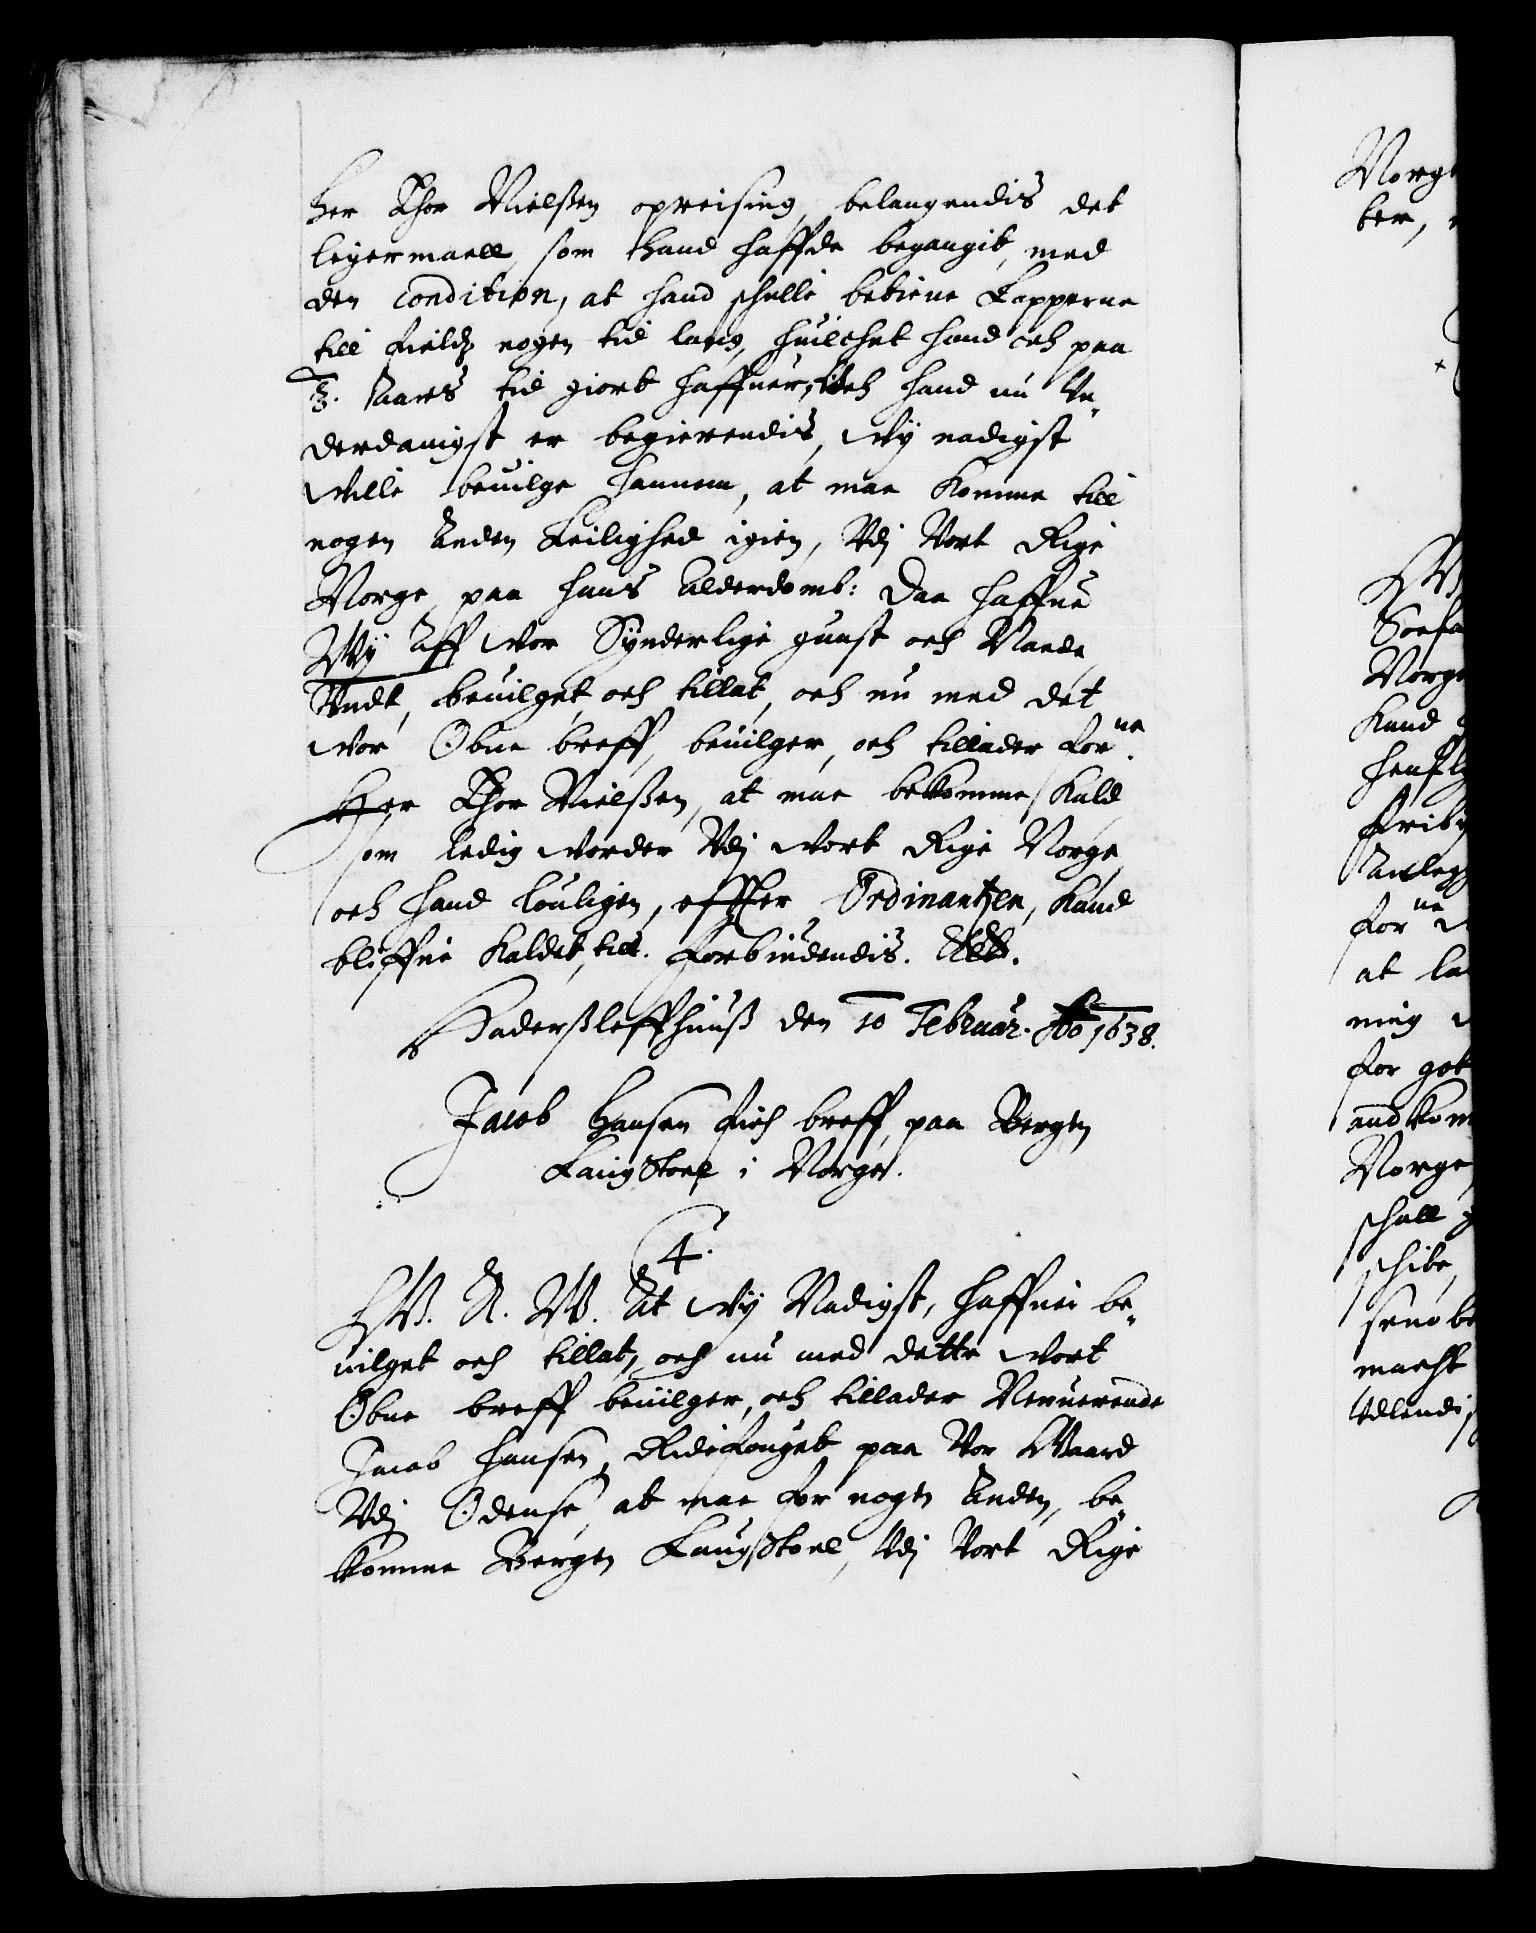 Her Thor Nielßen opreising, belangendis det
leyermaell, som Hand haffde begangit, med
den condition, at hand schulle betiene Lapperne
till fields nogen tid lang, huilchet hand och paa
3. Aars tid giort haffuer, och hand nu Un-
derdanigst er begierendis, Wy nadigst
wille beuilge hannem, at maa komme till
nogen Anden Leilighed igien, Udj Vort Rige
Norge, paa hans Alderdomb: Daa haffue
Wÿ Aff Vor Synderlige gunst och Naade,
Undt, beuilget, och tillat, och nu med det
wor Obne breff, beuilger, och tillader for:ne
Her Thor Nielßen, at maa bekomme Kald,
som ledig worder Udj Wort Rige Norge,
och hand louligen, effter Ordinantzen, kand
bliffue kaldet, till. Forbiudendis. Etc.
Haderßleffhuuß den 10 Februar. Ao 1638.
Jacob Hansen fich breff, paa Bergen
Laugstoel i Norge.
4.
W. A. W. At Wy Nadigst, haffuer be-
uilget och tillat, och nu med dette Wort
Obne breff beuilger, och tillader Neruerende
Jacob Hansen, Ridefouget paa Vor Gaard
Udj Odense, at maa for nogen Anden, be-
komme Bergen Laugstoel, Udj Vort Rige
Norge
ter,
Norge
Kand
for:ne
at la
ning
for got
Norge,
schall
schibe,
macht